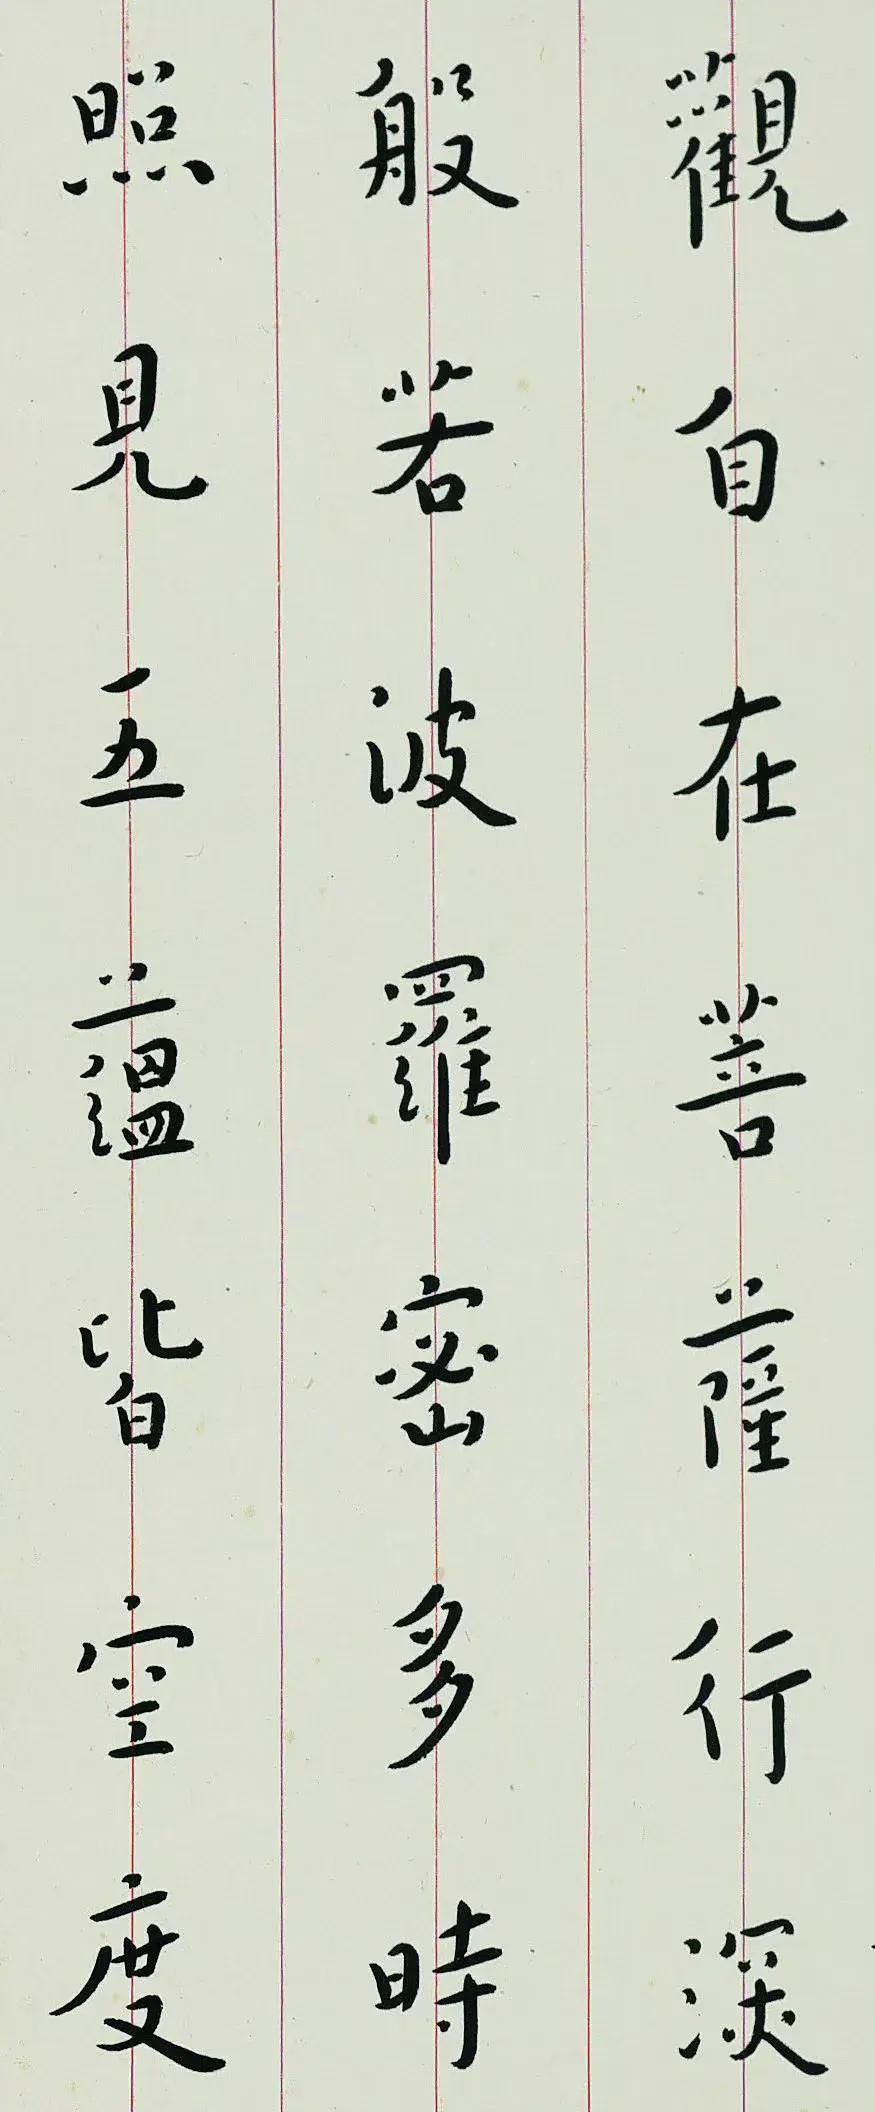 觀自在菩薩行深
般若波羅密多時
照見五蘊皆空度